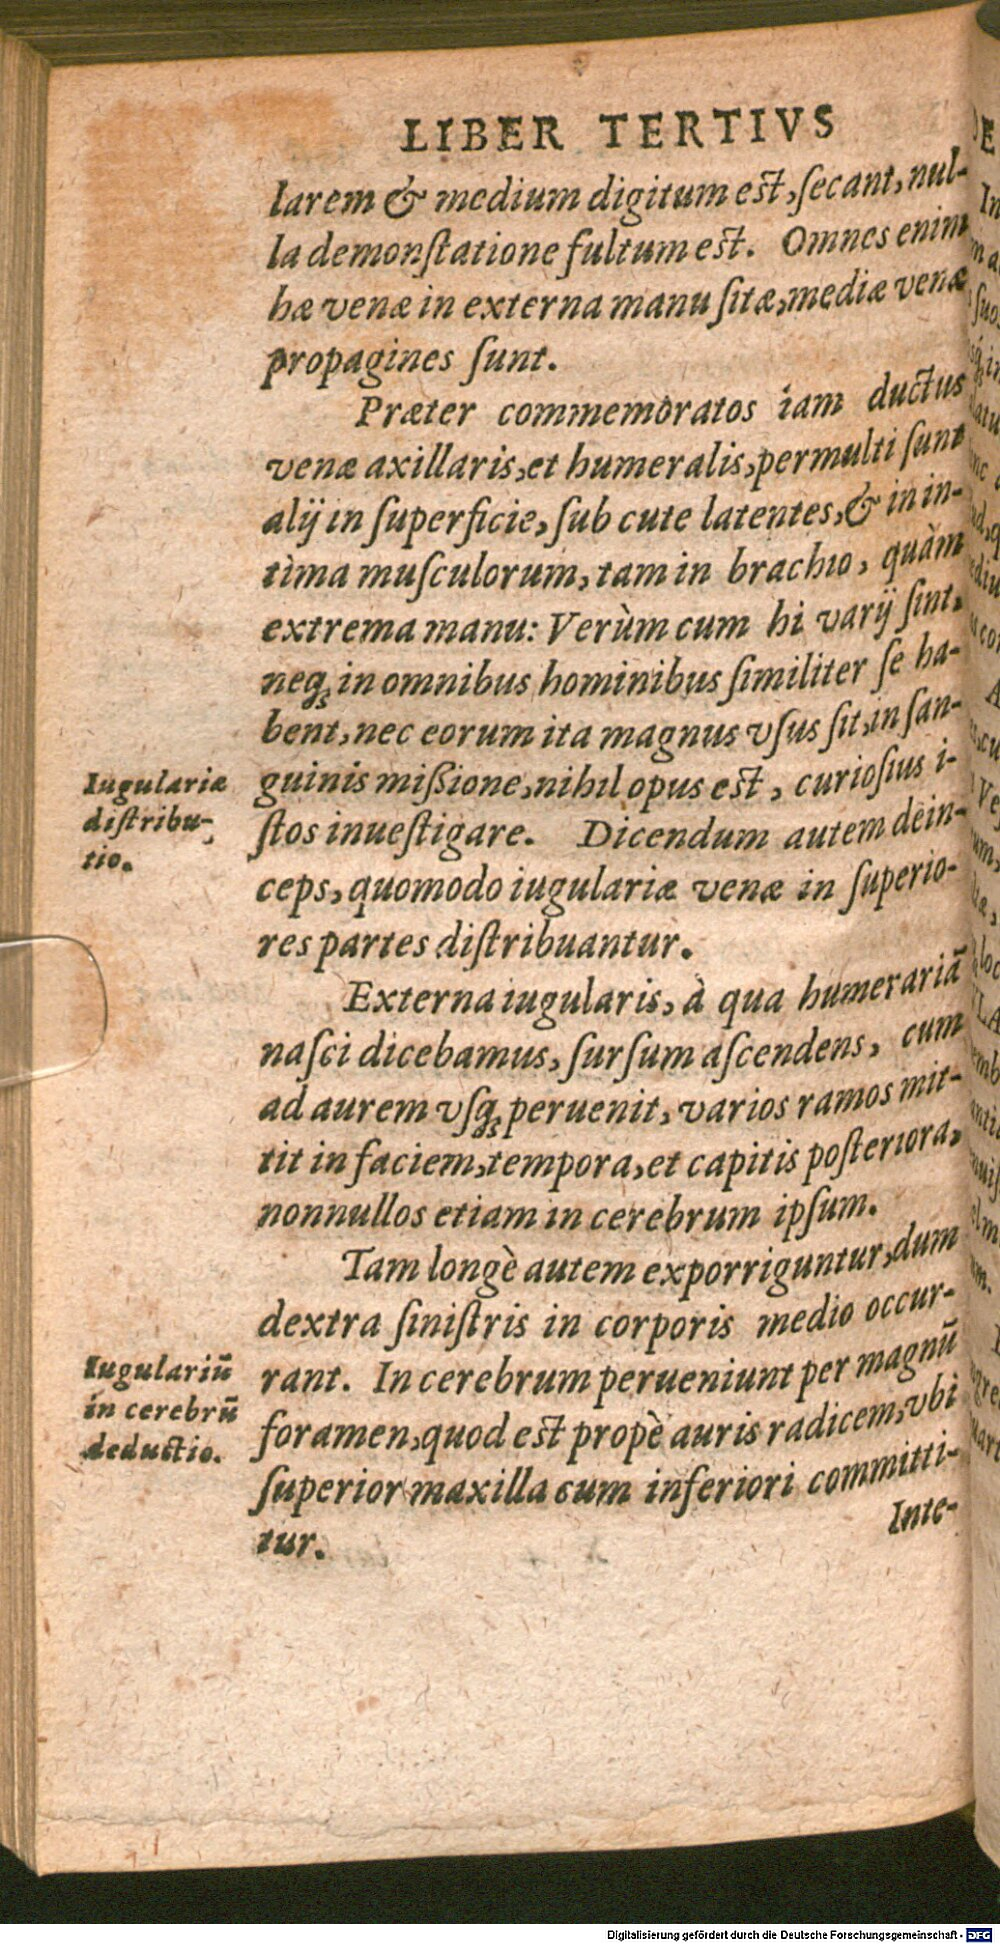 LIBER TERTIVS
larem & medium digitum est, ſecant, nul-
la demonſtatione fultum est. Omnes enim
hæ venæ in externa manu ſitæ, mediæ venæ
propagines ſunt.
Præter commemoratos iam ductus
venæ axillaris, et humeralis, permulti ſunt
alij in ſuperficie, ſub cute latentes, & in in-
tìma muſculorum, tam in brachio, quàm
extrema manu: Verùm cum hi varij ſint,
neq; in omnibus hominibus ſimiliter ſe ha-
bent, nec eorum ita magnus vſus ſit, in ſan-
guinis miſsione, nihil opus est, curioſius i-
ſtos inueſtigare. Dicendum autem dein-
ceps, quomodo iugulariæ venæ in ſuperio-
res partes diſtribuantur.
Iugulariæ
diſtribu-
tio.
Externa iugularis, à qua humerariā
naſci dicebamus, ſurſum aſcendens, cum
ad aurem vſq; peruenit, varios ramos mit-
tit in faciem, tempora, et capitis poſteriora,
nonnullos etiam in cerebrum ipſum.
Tam longè autem exporriguntur, dum
dextra ſiniſtris in corporis medio occur-
rant. In cerebrum perueniunt per magnū
foramen, quod est propè auris radicem, vbi
ſuperior maxilla cum inferiori committi-
tur.
Iugulariū
in cerebrū
deductio.
Inte-
Digitalisierung gefördert durch die Deutsche Forschungsgemeinschaft - DFG